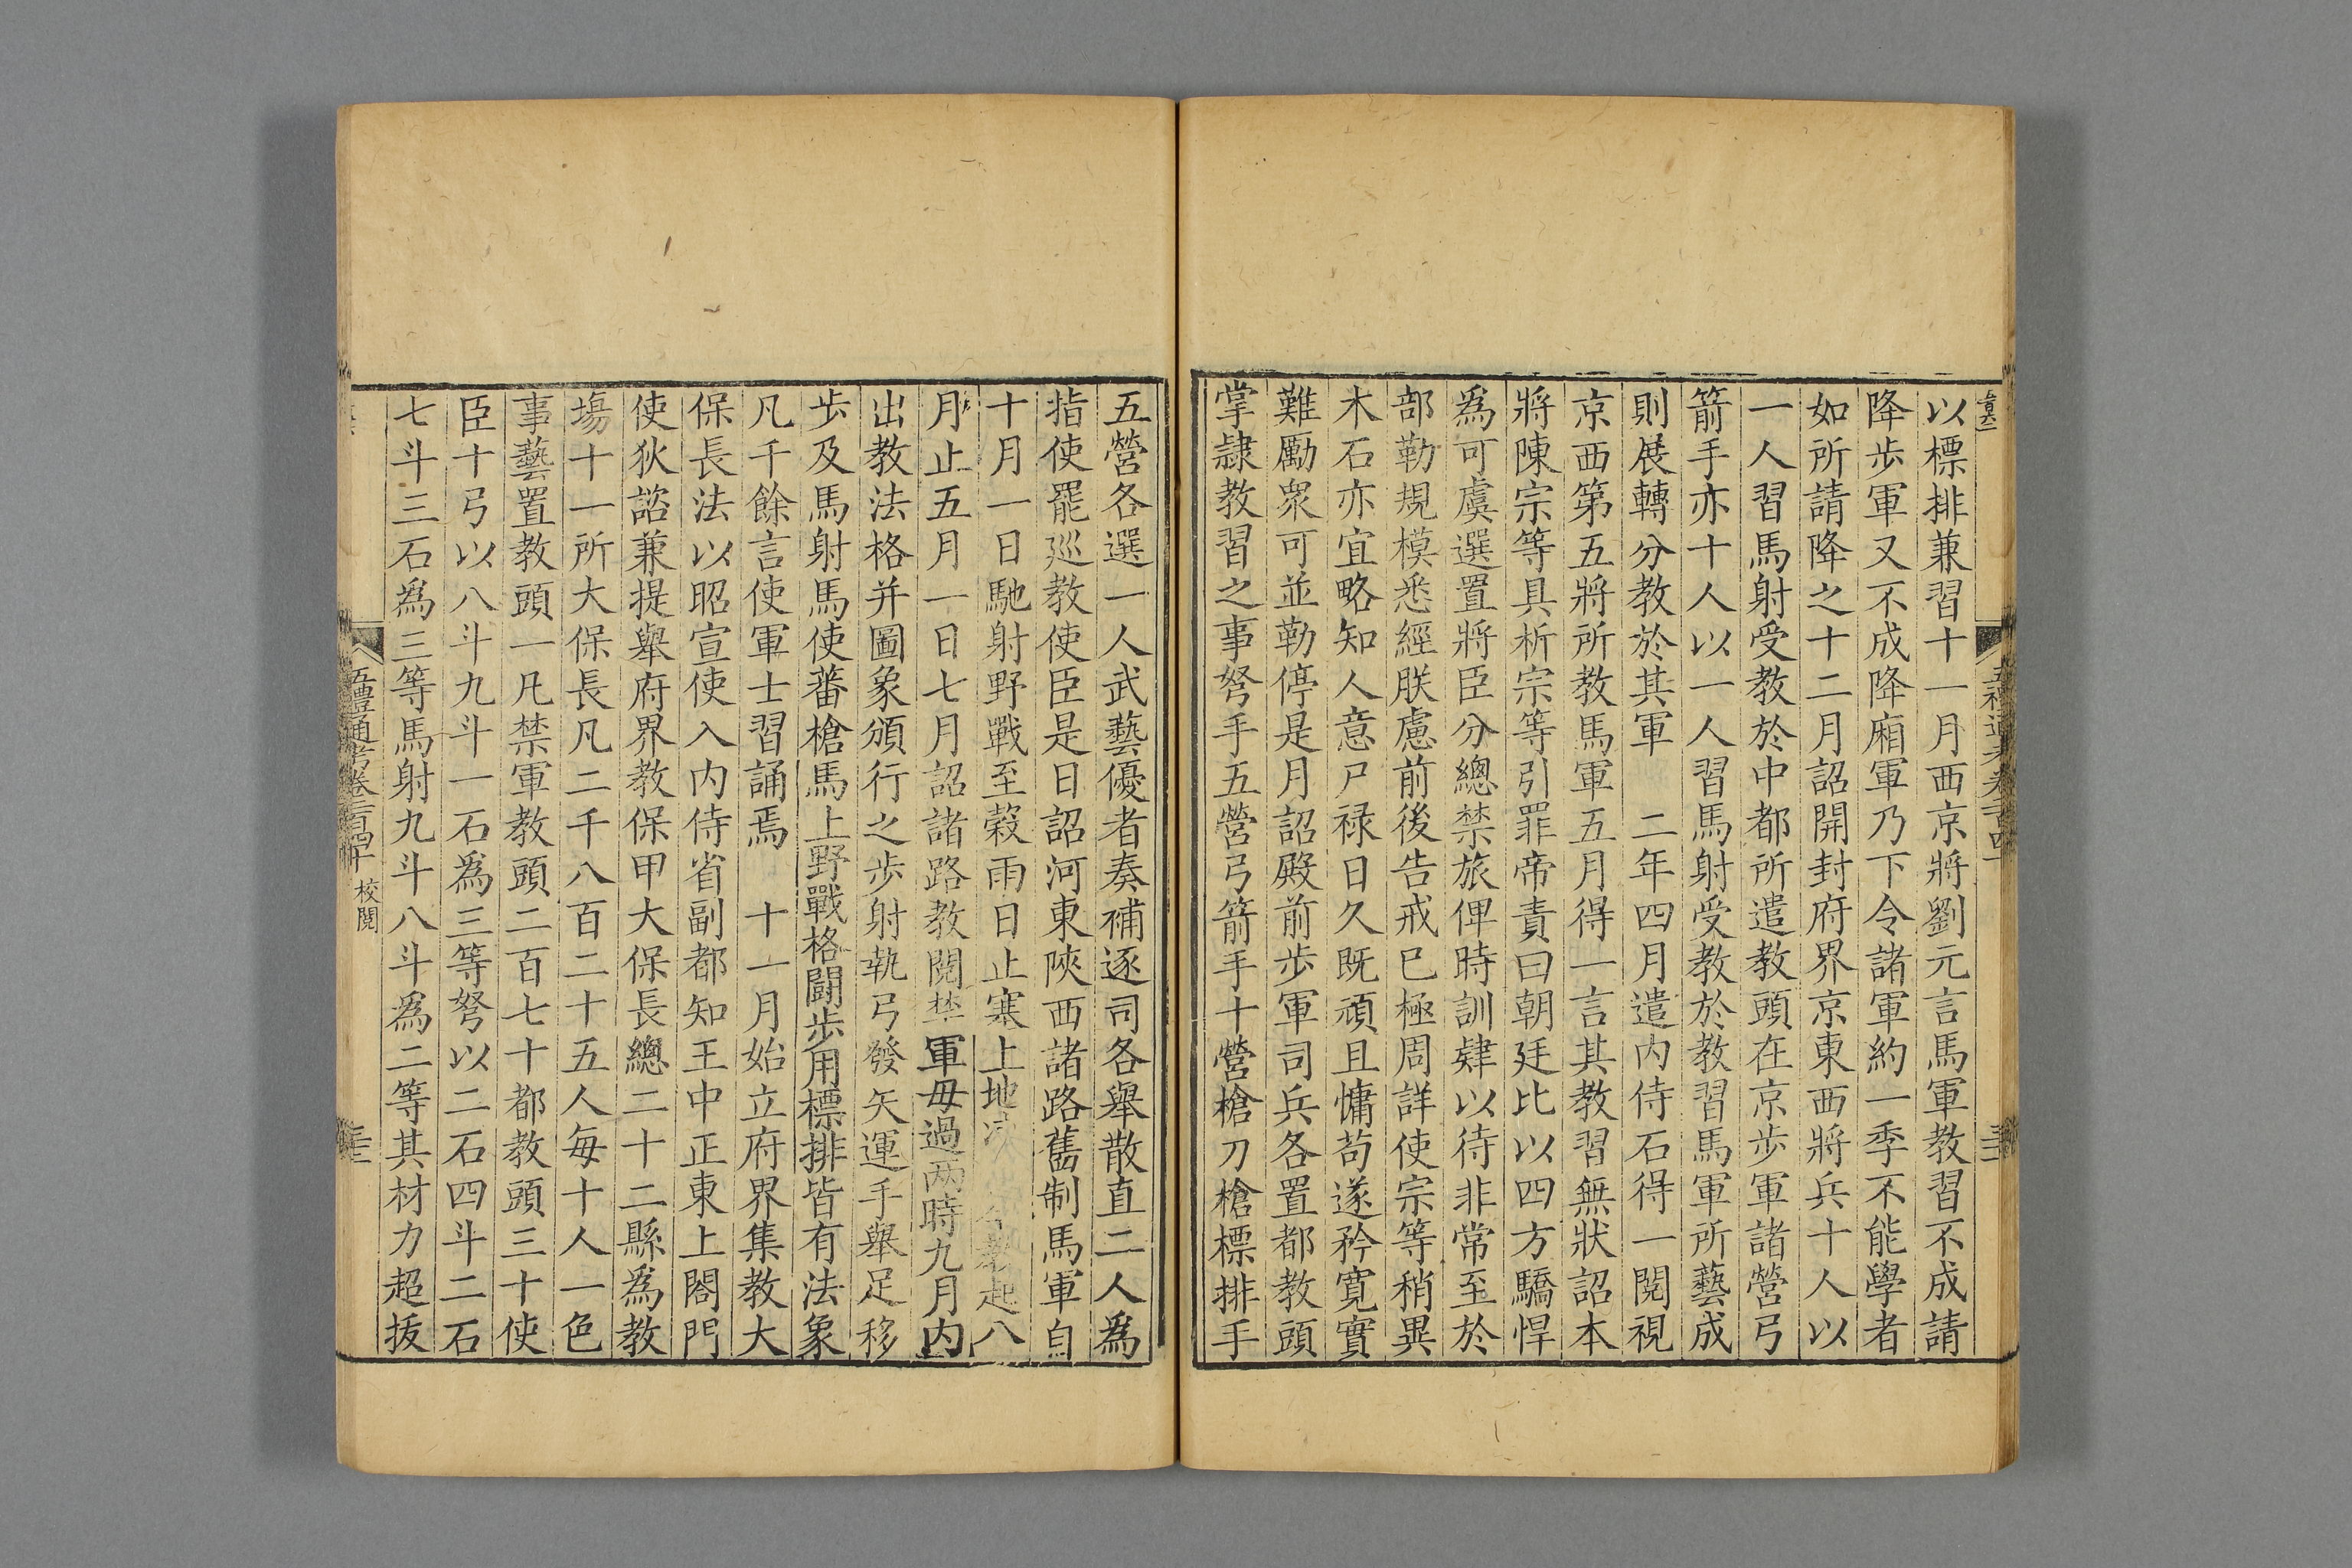 以標排兼習十一月西京將劉元言馬軍教習不成請
降歩軍又不成降廂軍乃下令諸軍約一季不能學者
如所請降之十二月詔開封府界京東西將兵十人以
一人習馬射受教於中都所遣教頭在京歩軍諸營弓
箭手亦十人以一人習馬射受教於教習馬軍所藝成
則展轉分教於其軍　二年四月遣内侍石得一閱視
京西第五將所教馬軍五月得一言其教習無狀詔本
將陳宗等具析宗等引罪帝責曰朝廷比以四方驕悍
爲可虞選置將臣分總禁旅俾時訓肄以待非常至於
部勒規模悉經朕慮前後告戒已極周詳使宗等稍異
木石亦宜略知人意尸禄日久既頑且慵苟遂矜寛實
難勵衆可並勒停是月詔殿前歩軍司兵各置都教頭
掌隷教習之事弩手五營弓箭手十營槍刀槍標排手
五營各選一人武藝優者奏補逐司各舉散直二人爲
指使罷廵教使臣是日詔河東陝西諸路舊制馬軍自
十月一日馳射野戰至穀雨日止塞上地 教起八
月止五月一日七月詔諸路教閱禁軍毋過兩時九月内
出教法格并圖象頒行之歩射執弓發矢運手舉足移
歩及馬射馬使蕃槍馬上野戰格鬬歩用標排皆有法象
凡千餘言使軍士習誦焉　十一月始立府界集教大
保長法以昭宣使入内侍省副都知王中正東上閤門
使狄諮兼提舉府界教保甲大保長總二十二縣爲教
塲十一所大保長凡二千八百二十五人每十人一色
事藝置教頭一凡禁軍教頭二百七十都教頭三十使
臣十弓以八斗九斗一石爲三等弩以二石四斗二石
七斗三石爲三等馬射九斗八斗爲二等其材力超拔
五禮通考卷二百四十 校閱